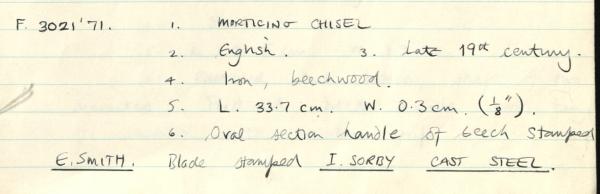 F. 3021'71. 1. MORTICING CHISEL
2. English. 3. Late 19th century.
4. Iron, beechwood.
5. L. 33.7 cm. W. 0.3 cm. (1/8").
6. Oval section handle of beech stamped
E. SMITH. Blade stamped I. SORBY CAST STEEL.